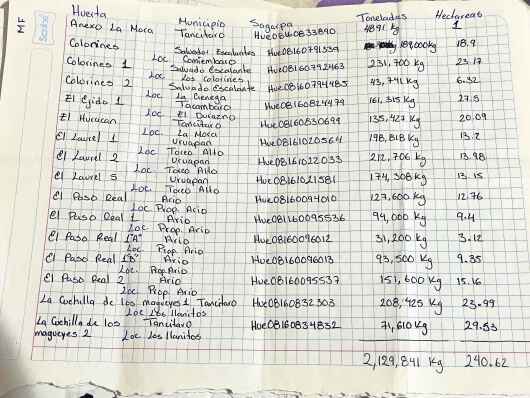 MF
Huerta Municipio Sagarpa Toneladas Hectareas
Anexo La Mora Tancitaro Hue08160833890 4891 kg 1
Colorines Salvador Escalantes Hue08160791339 189,000kg 18.9
Loc Comiembaro
Colorines 1 Salvado Escalante Hue08160792463 231,700 kg 23.17
Loc Los Colorines
Colorines 2 Salvado Escalante Hue08160794485 43,741 kg 6.32
Loc La Cienega
El Ejido 1 Tacambaro Hue08160824479 161,315 kg 27.5
Loc El Durazno
El Huracan Tancitaro Hue08160830699 135,427 kg 20.09
Loc La Moca
El Laurel 1 Uruapan Hue08161020564 198,818 kg 13.2
Loc Toreo Alto
El Laurel 2 Uruapan Hue08161022033 212,706 kg 13.98
Loc Toreo Alto
El Laurel 5 Uruapan Hue08161021581 174,308kg 13.15
Loc. Toreo Alto
El Paso Real Ario Hue08160094010 127,600 kg 12.76
Loc Prop. Ario
El Paso Real 1 Ario Hue081160095536 94,000 kg 9.4
Loc Prop. Ario
El Paso Real 1"A" Ario Hue08160096012 31,200 kg 3.12
Loc Prop. Ario
El Paso Real 1"B" Ario Hue08160096013 93,500 kg 9.35
Loc. Prop Ario
El Paso Real 2 Ario Hue08160095537 151,600 kg 15.16
Loc. Prop. Ario
La Cuchilla de los magueyes 1 Tancitaro Hue08160832303 208,425 kg 23.99
Loc Los llanitos
La Cuchilla de los Tancitaro Hue08160834832 71,610 kg 29.53
magueyes 2 Loc Los llanitos
2,129,841 kg 240.62